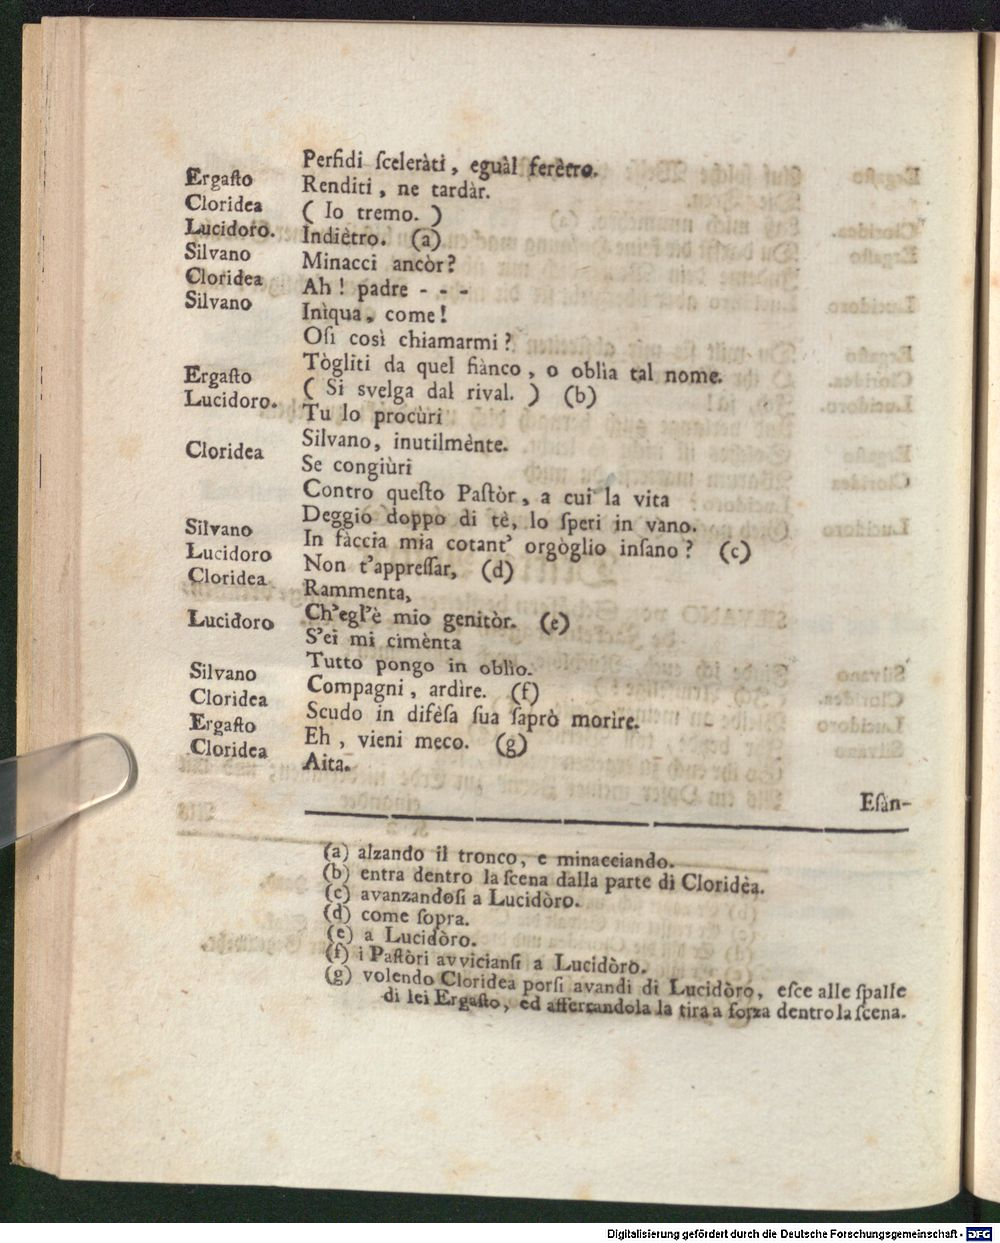 Perfidi ſceleràti, eguàl ferètro.
Ergaſto Renditi, ne tardàr.
Cloridea ( Io tremo. )
Lucidoro. Indiètro. (a)
Silvano Minacci ancòr?
Cloridea Ah! padre - - -
Silvano Inìqua, come!
Oſi così chiamarmi?
Tògliti da quel fiànco, o oblìa tal nome.
Ergaſto ( Si svelga dal rival. ) (b)
Lucidoro. Tu lo procùri
Silvano, inutilmènte.
Cloridea Se congiùri
Contro queſto Paſtòr, a cui la vita
Deggio doppo di tè, lo ſperi in vano.
Silvano In fàccia mia cotant' orgòglio inſano? (c)
Lucidoro Non t'appreſſar, (d)
Cloridea Rammenta,
Ch'egl'è mio genitòr. (e)
Lucidoro S'ei mi cimènta
Tutto pongo in oblìo.
Silvano Compagni, ardìre. (f)
Cloridea Scudo in difèſa ſua ſaprò morìre.
Ergaſto Eh, vieni meco. (g)
Cloridea Aita.
Eſàn-
(a) alzando il tronco, e minacciando.
(b) entra dentro la ſcena dalla parte di Cloridèa.
(c) avanzandoſi a Lucidòro.
(d) come ſopra.
(e) a Lucidòro.
(f) i Paſtòri avvicianſi a Lucidòro.
(g) volendo Cloridea porſi avandi di Lucidòro, eſce alle ſpalle
di lei Ergaſto, ed afferrandola la tira a forza dentro la ſcena.
Digitalisierung gefördert durch die Deutsche Forschungsgemeinschaft - DFG